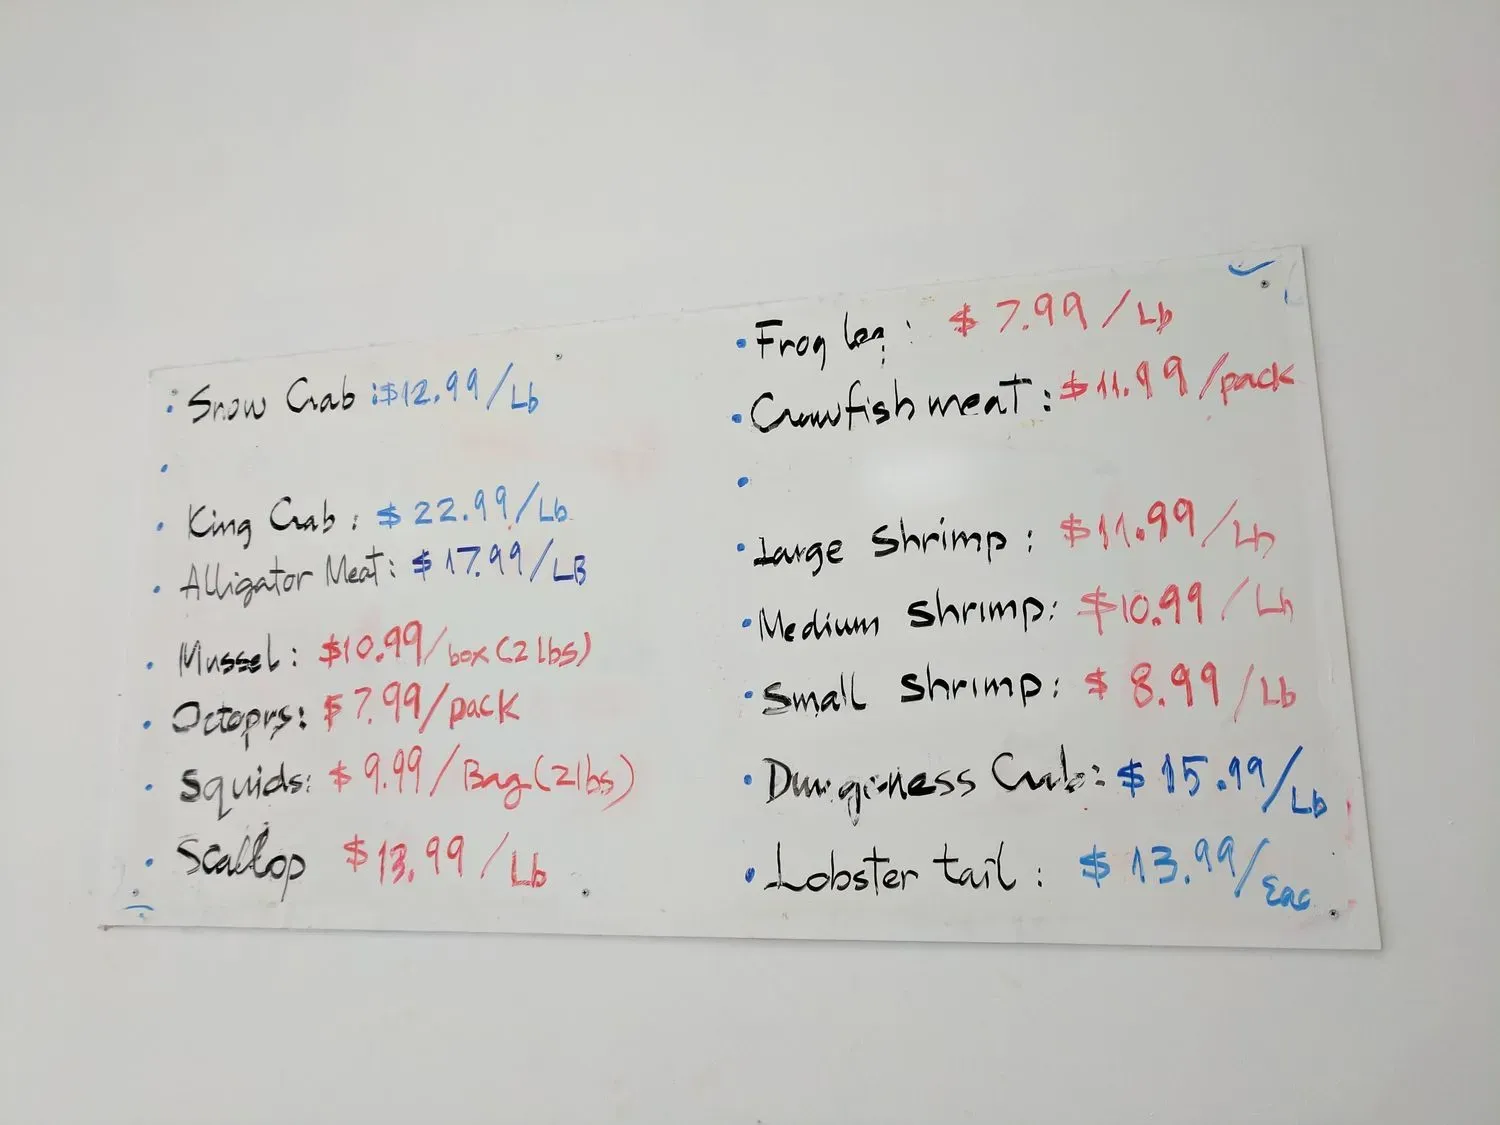 Snow Crab : $12.99/Lb
King Crab : $22.99/Lb
Alligator Meat : $17.99/LB
Mussel : $10.99/box (2 lbs)
Octoprs : $7.99/pack
Squids : $9.99/Bag (2lbs)
Scallop $13.99/Lb
Frog leg : $7.99/Lb
Crawfish meat : $11.99/pack
Large Shrimp : $11.99/Lb
Medium Shrimp : $10.99/Lb
Small Shrimp : $8.99/Lb
Dungeness Crab : $15.99/Lb
Lobster tail : $13.99/Eac